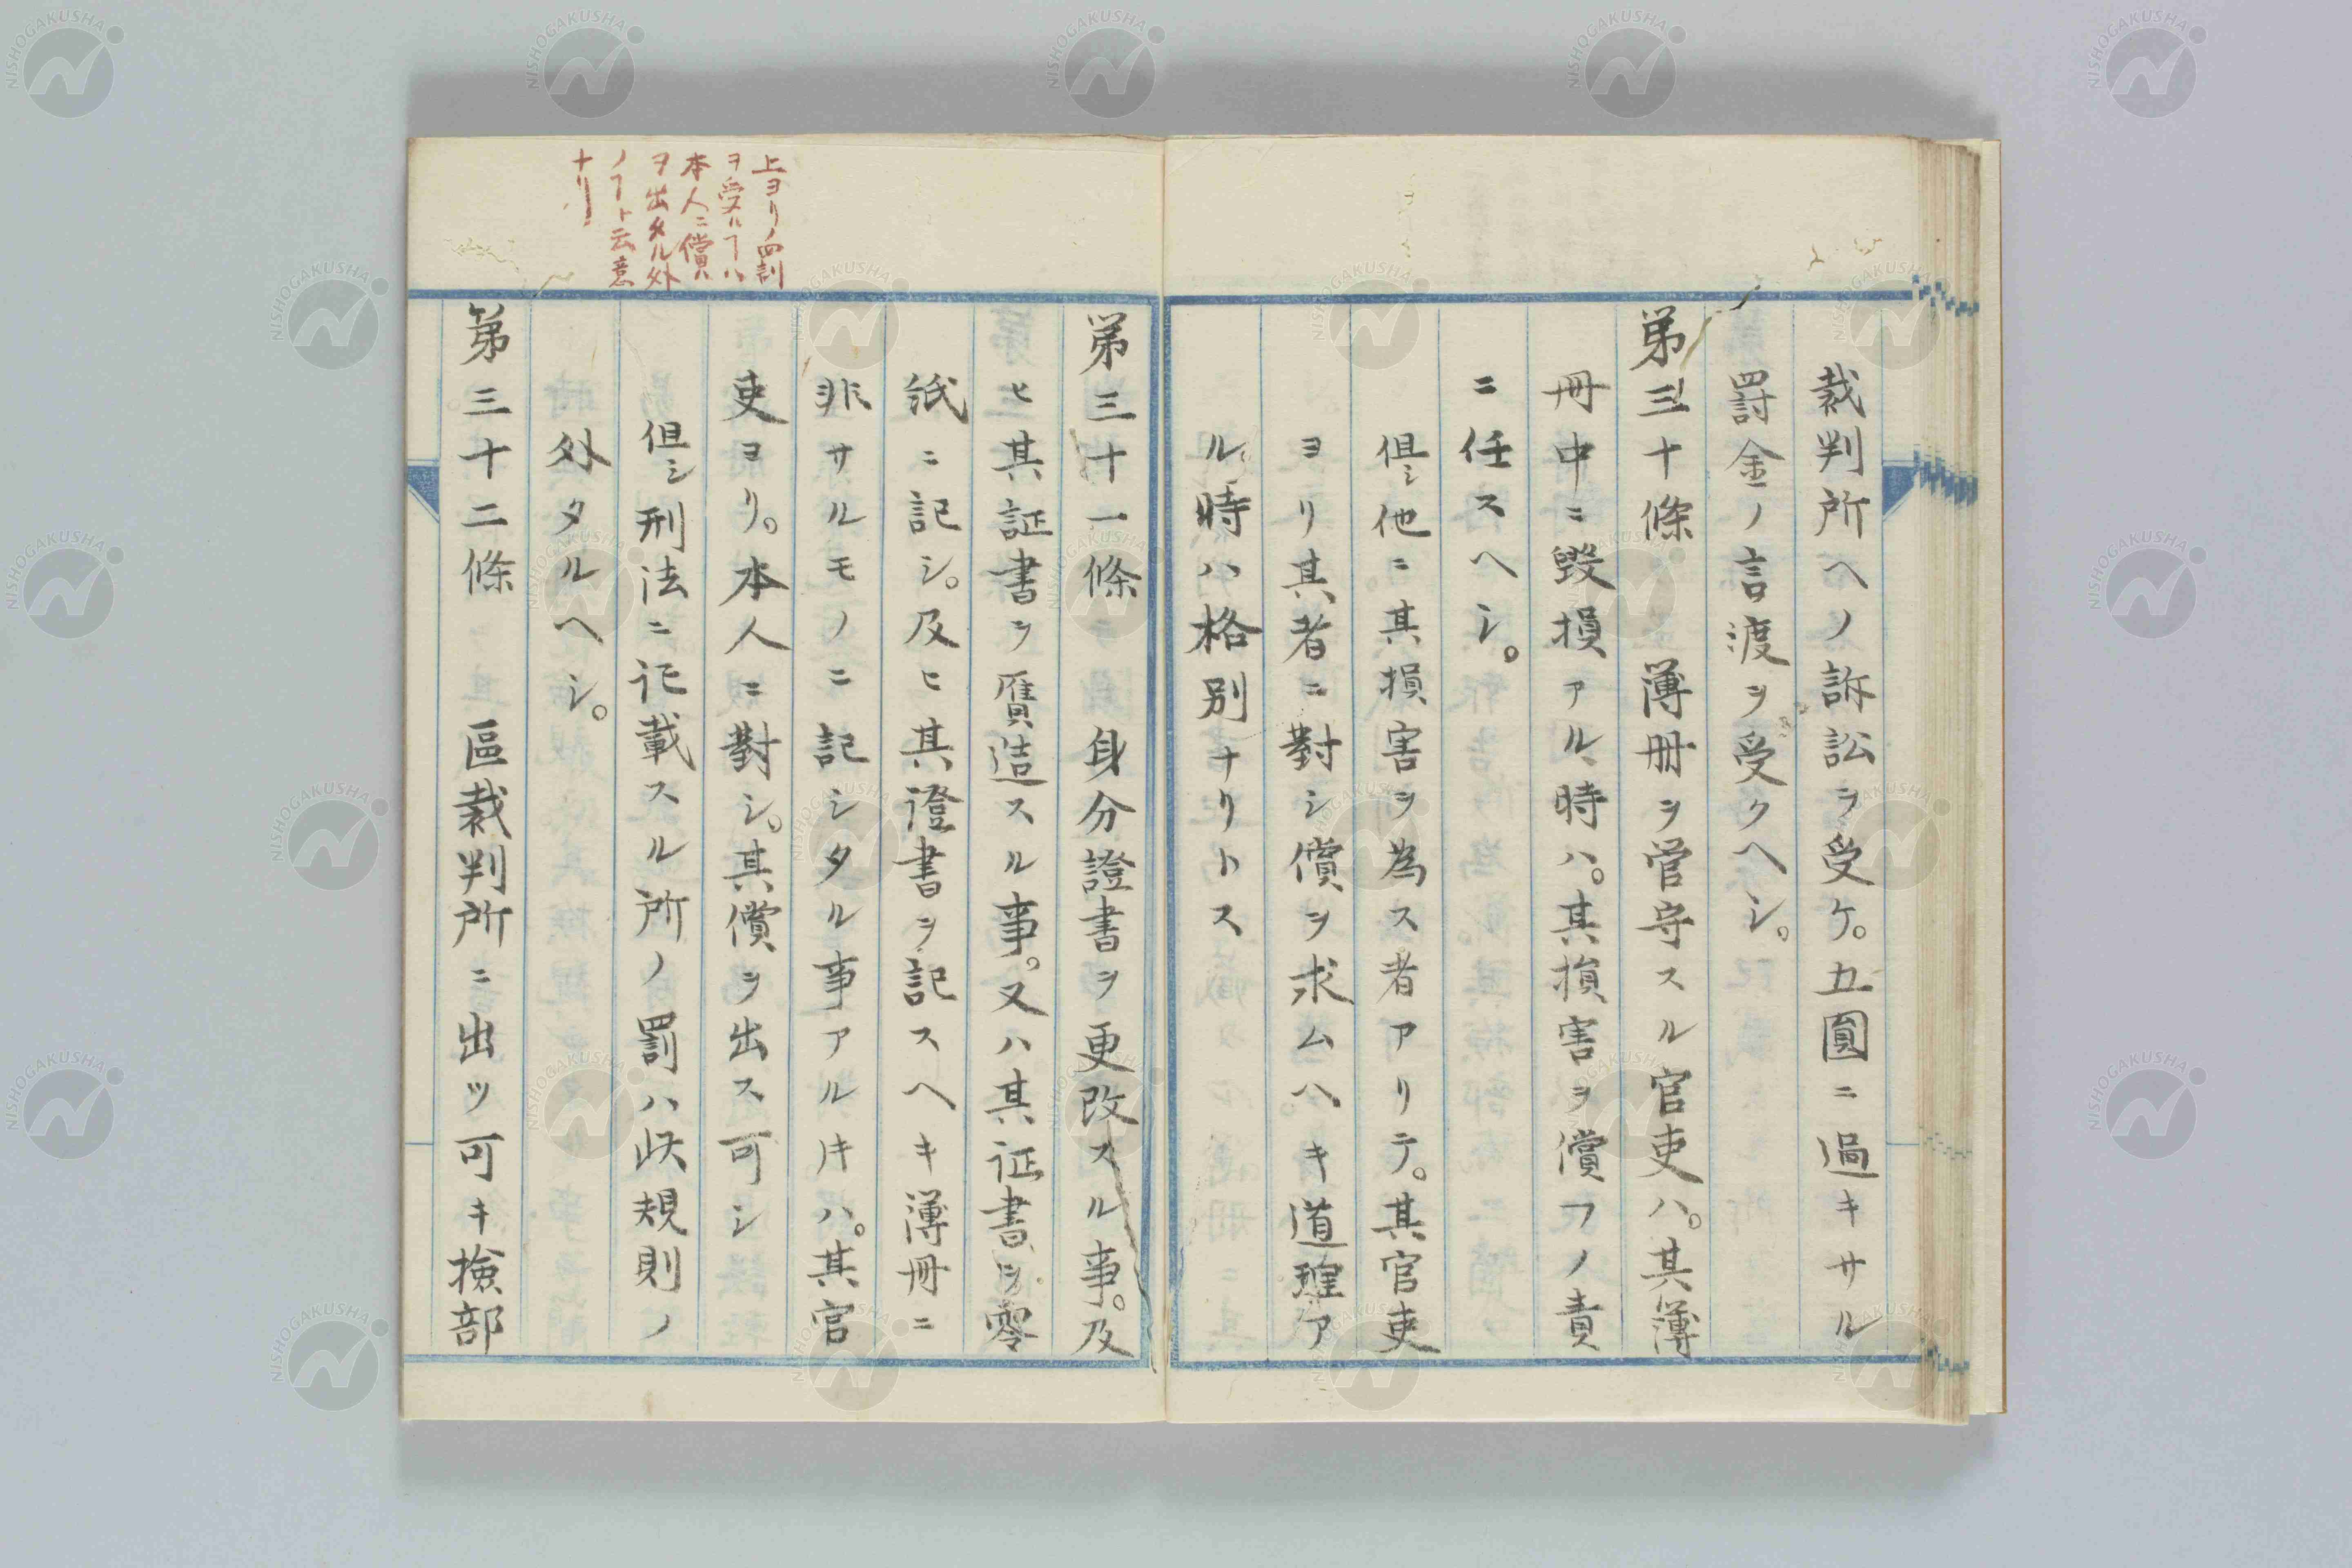 裁判所ヘノ訴訟ヲ受ケ。五圓ニ過キサル
罰金ノ言渡ヲ受クヘシ。
第三十條 簿冊ヲ管守スル官吏ハ。其簿
冊中ニ毀損アル時ハ。其損害ヲ償フノ責
ニ任スヘシ。
但シ他ニ其損害ヲ為ス者アリテ。其官吏
ヨリ其者ニ對シ償ヲ求ムヘキ道理ア
ル時ハ格別ナリトス
第三十一條 身分證書ヲ更改スル事。及
ヒ其証書ヲ贋造スル事。又ハ其証書ヲ零
紙ニ記シ。及ヒ其證書ヲ記スヘキ簿冊ニ
非サルモノニ記シタル事アル片ハ。其官
吏ヨリ。本人ニ對シ。其償ヲ出ス可シ
但シ刑法ニ記載スル所ノ罰ハ此規則ノ
外タルヘシ。
第三十二條 區裁判所ニ出ツ可キ検部
上ヨリノ罰
ヲ受ルヿハ
本人ニ償
ヲ出タル外
ノヿト云意
ナリ
NISHOGAKUSHA